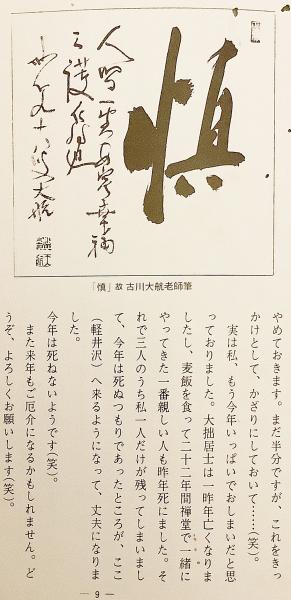 慎
「慎」故 古川大航老師筆
やめておきます。まだ半分ですが、これをきっ
かけとして、かざりにしておいて……(笑)。
実は私、もう今年いっぱいでおしまいだと思
っておりました。大拙居士は一昨年亡くなりま
したし、麦飯を食って二十二年間禅堂で一緒に
やってきた一番親しい人も昨年死にました。そ
れで三人のうち私一人だけが残ってしまいまし
て、今年は死ぬつもりであったところが、ここ
(軽井沢)へ来るようになって、丈夫になりま
した。
今年は死ねないようです(笑)。
また来年もご厄介になるかもしれません。ど
うぞ、よろしくお願いします(笑)。
— 9 —